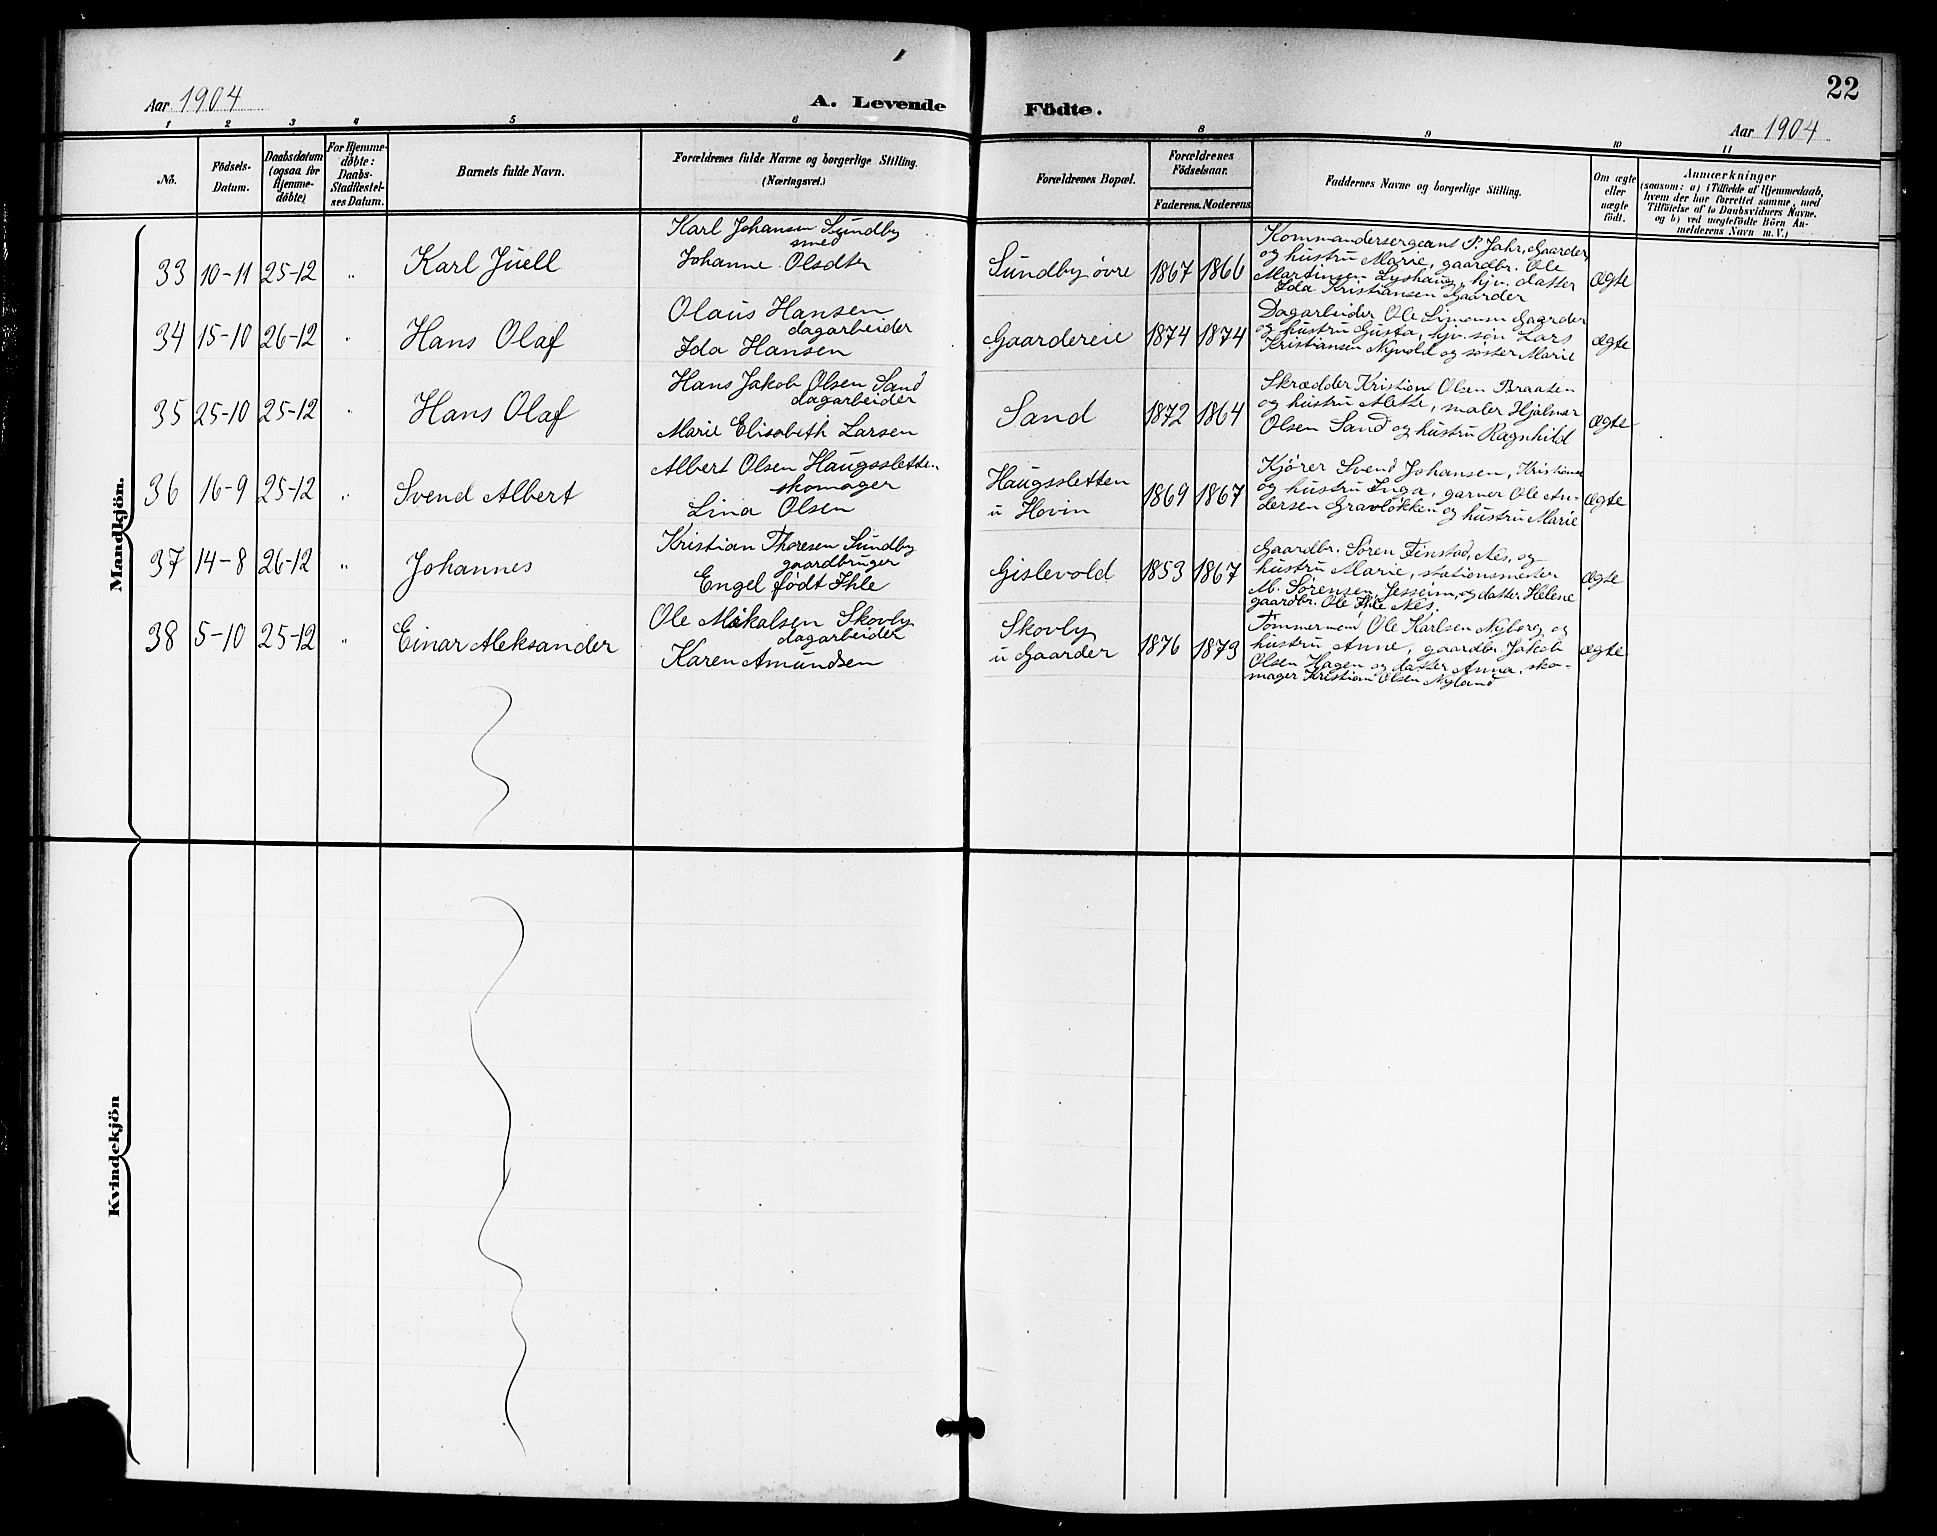 Aar 1904
A. Levende
Födte.
22
Aar 1904
1 2 3 4 5 6 8 9 10 11
No.
Födsels-
Datum.
Daabsdatum
(ogsaa for
Hjemme-
døbte)
For Hjemme-
døbte:
Daabs-
Stadfæstel-
ses Datum.
Barnets fulde Navn.
Forældrenes fulde Navne og borgerlige Stilling.
(Næringsvei.)
Forældrenes Bopæl.
Forældrenes
Födselsaar.
Faderens. Moderens.
Faddernes Navne og borgerlige Stilling.
Om ægte
eller
uægte
født.
Anmærkninger
(saasom: a) i Tilfælde af Hjemmedaab,
hvem der har forrettet samme, med
Tilföielse af to Daabsvidners Navne.
og b) ved uægtefødte Börn An-
melderens Navn m. V.)
Mandkjön.
33 10-11 25-12 „ Karl Juell
Karl Johansen Sundby
smed
Johanne Olsdtr
Sundby øvre 1867 1866
Kommandersergeant P. Jahr, Gaarder,
og hustru Marie, gaardbr. Ole
Martinsen Lyshaug, hjv. datter
Ida Kristiansen Gaarder
ægte
34 15-10 26-12 „ Hans Olaf
Olaus Hansen
dagarbeider
Ida Hansen
Gaardereie 1874 1874
Dagarbeider Ole Simensen Gaarder
og hustru Gusta, hjv. søn Lars
Kristiansen Nyvold og søster Marie
ægte
35 25-10 25-12 „ Hans Olaf
Hans Jakob Olsen Sand
dagarbeider
Marie Elisabeth Larsen
Sand 1872 1864
Skrædder Kristian Olsen Braaten
og hustru Alette, maler Hjalmar
Olsen Sand og hustru Ragnhild
ægte
36 16-9 25-12 „ Svend Albert
Albert Olsen Haugssletten
skomager
Lina Olsen
Haugssletten
u Hovin
1869 1867
Kjører Svend Johansen, Kristiania
og hustru Inga, garver Ole An-
dersen Gravløkken og hustru Marie
ægte
37 14-8 26-12 „ Johannes
Kristian Thoresen Sundby
gaardbruger
Engel født Ihle
Gislevold 1853 1867
Gaardbr. Søren Finstad, Nes, og
hustru Marie, stationsmester
M. Sørensen, Jesseim, og datter Helene
gaardbr. Ole Ihle Nes.
ægte
38 5-10 25-12 „ Einar Aleksander
Ole Mikalsen Skovly
dagarbeider
Karen Amundsen
Skovly
u Gaarder
1876 1873
Tømmermand Ole Karlsen Nyborg og
hustru Anne, gaardbr. Jakob
Olsen Hagen og datter Anna, sko-
mager Kristian Olsen Nyland
ægte
Kvindekjön